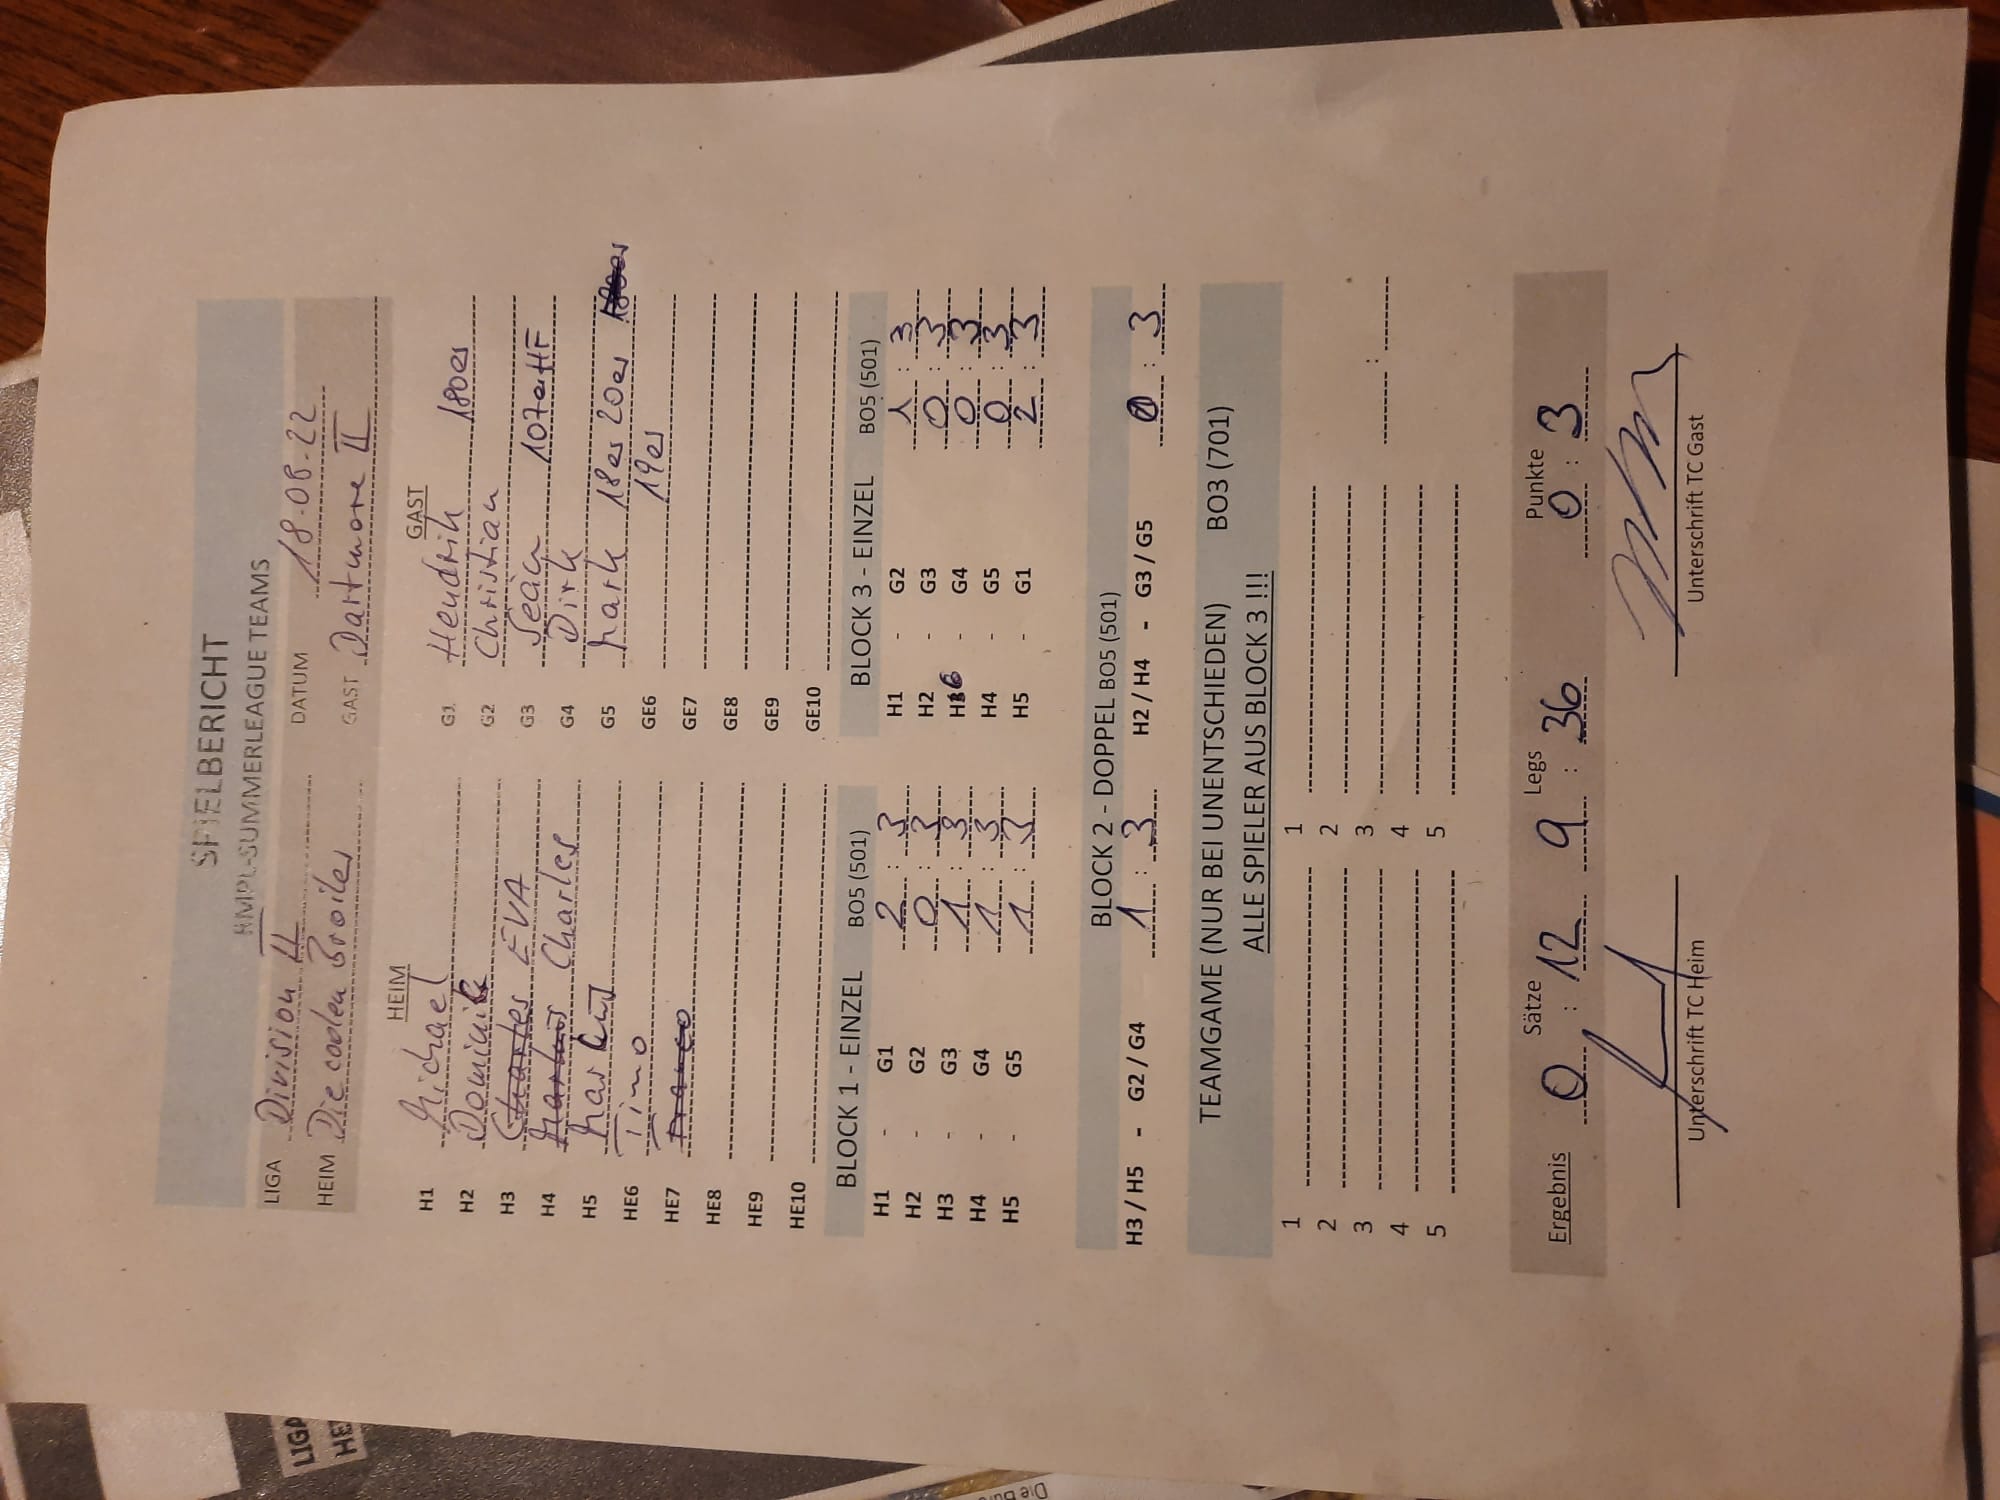 SPIELBERICHT
HMPL-SUMMERLEAGUE TEAMS
LIGA Division II DATUM 18.08.22
HEIM Die coolen Broiler GAST Dartmoore II
HEIM GAST
H1 Michael G1 Hendrik 180er
H2 Dominik G2 Christian
H3 Charles EVA G3 Sean 107erHF
H4 Markus Charles G4 Dirk
H5 Mark G5 Mark 18er 20er 18er
HE6 Timo GE6 19er
HE7 Franco GE7
HE8 GE8
HE9 GE9
HE10 GE10
BLOCK 1 - EINZEL BO5 (501) BLOCK 3 - EINZEL BO5 (501)
H1 - G1 2 : 3 H1 - G2 1 : 3
H2 - G2 0 : 3 H2 - G3 0 : 3
H3 - G3 1 : 3 H6 - G4 0 : 3
H4 - G4 1 : 3 H4 - G5 0 : 3
H5 - G5 1 : 3 H5 - G1 2 : 3
BLOCK 2 - DOPPEL BO5 (501)
H3 / H5 - G2 / G4 1 : 3 H2 / H4 - G3 / G5 0 : 3
TEAMGAME (NUR BEI UNENTSCHIEDEN) BO3 (701)
ALLE SPIELER AUS BLOCK 3 !!!
1 1 :
2 2
3 3
4 4
5 5
Sätze Legs Punkte
Ergebnis 0 : 12 9 : 36 0 : 3
Unterschrift TC Heim Unterschrift TC Gast
LIGA
HE